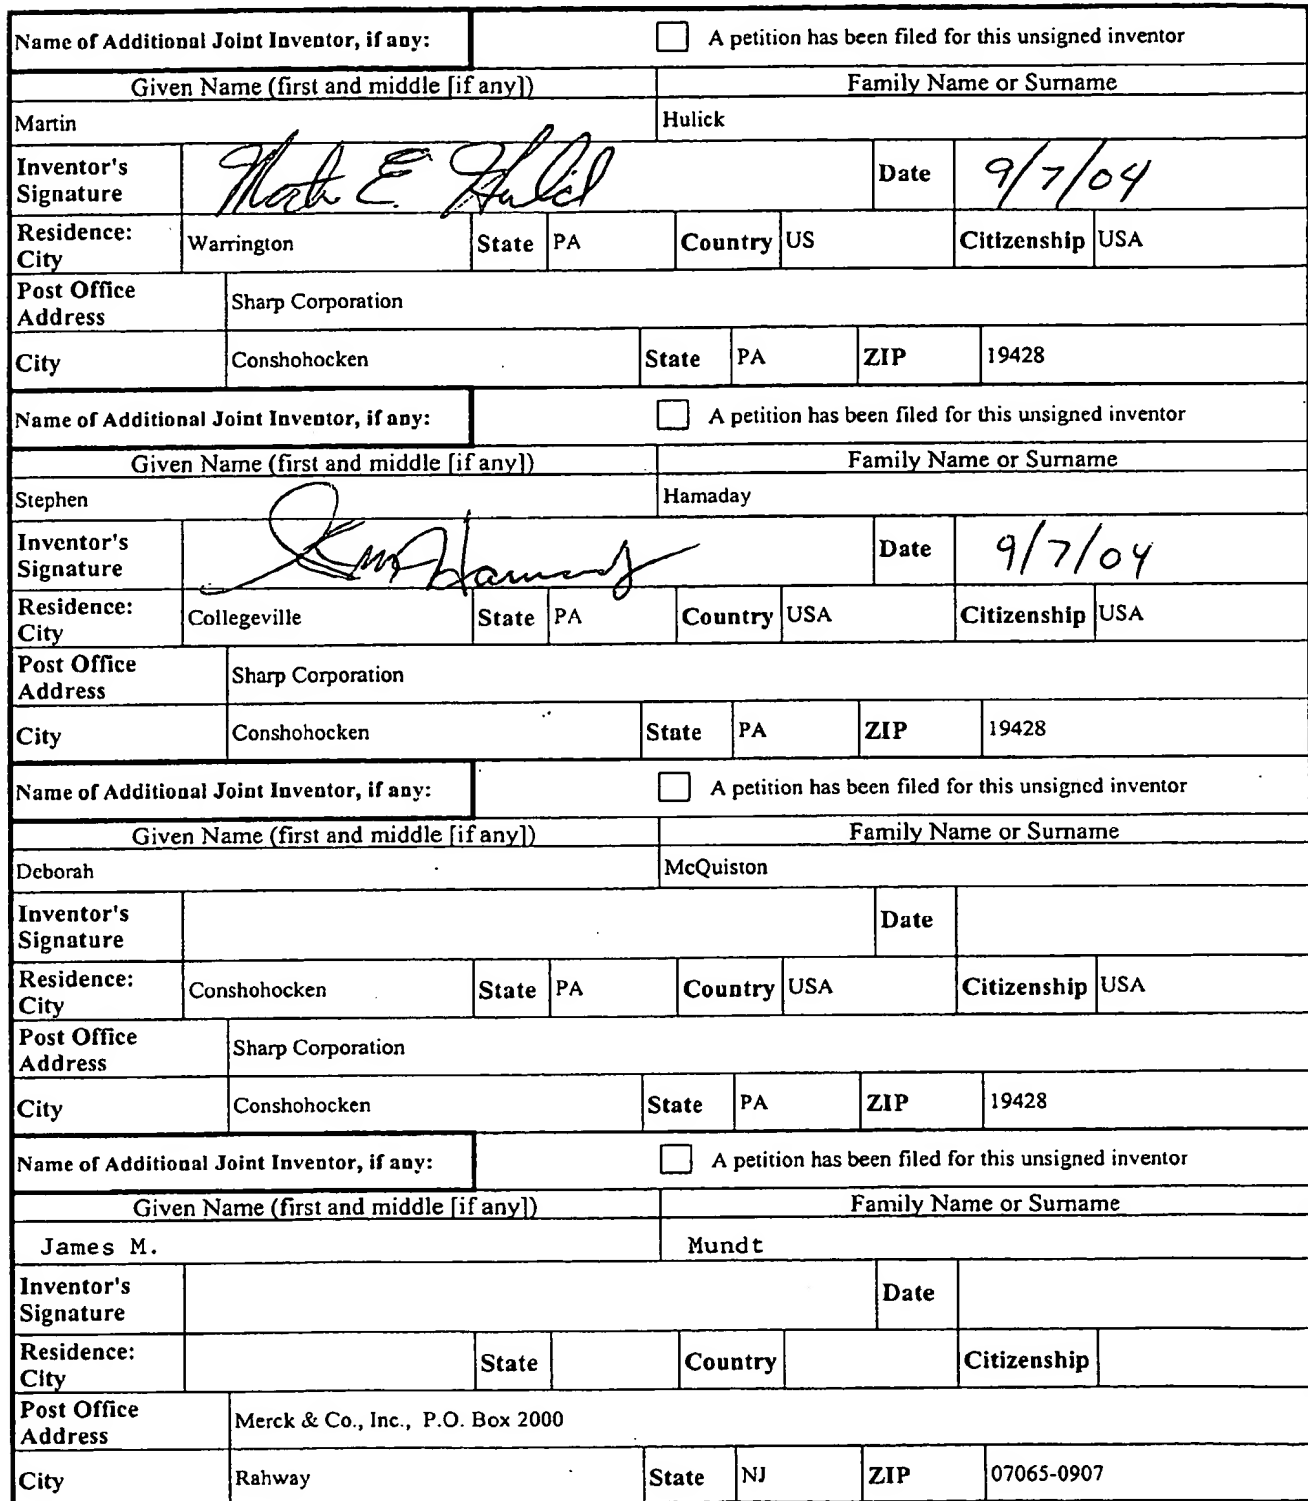 Name of Additional Joint Inventor, if any: A petition has been filed for this unsigned inventor
Given Name (first and middle [if any]) Family Name or Surname
Martin Hulick
Inventor's Signature Date 9/7/04
Residence: City Warrington State PA Country US Citizenship USA
Post Office Address Sharp Corporation
City Conshohocken State PA ZIP 19428
Name of Additional Joint Inventor, if any: A petition has been filed for this unsigned inventor
Given Name (first and middle [if any]) Family Name or Surname
Stephen Hamaday
Inventor's Signature Date 9/7/04
Residence: City Collegeville State PA Country USA Citizenship USA
Post Office Address Sharp Corporation
City Conshohocken State PA ZIP 19428
Name of Additional Joint Inventor, if any: A petition has been filed for this unsigned inventor
Given Name (first and middle [if any]) Family Name or Surname
Deborah McQuiston
Inventor's Signature Date
Residence: City Conshohocken State PA Country USA Citizenship USA
Post Office Address Sharp Corporation
City Conshohocken State PA ZIP 19428
Name of Additional Joint Inventor, if any: A petition has been filed for this unsigned inventor
Given Name (first and middle [if any]) Family Name or Surname
James M. Mundt
Inventor's Signature Date
Residence: City State Country Citizenship
Post Office Address Merck & Co., Inc., P.O. Box 2000
City Rahway State NJ ZIP 07065-0907